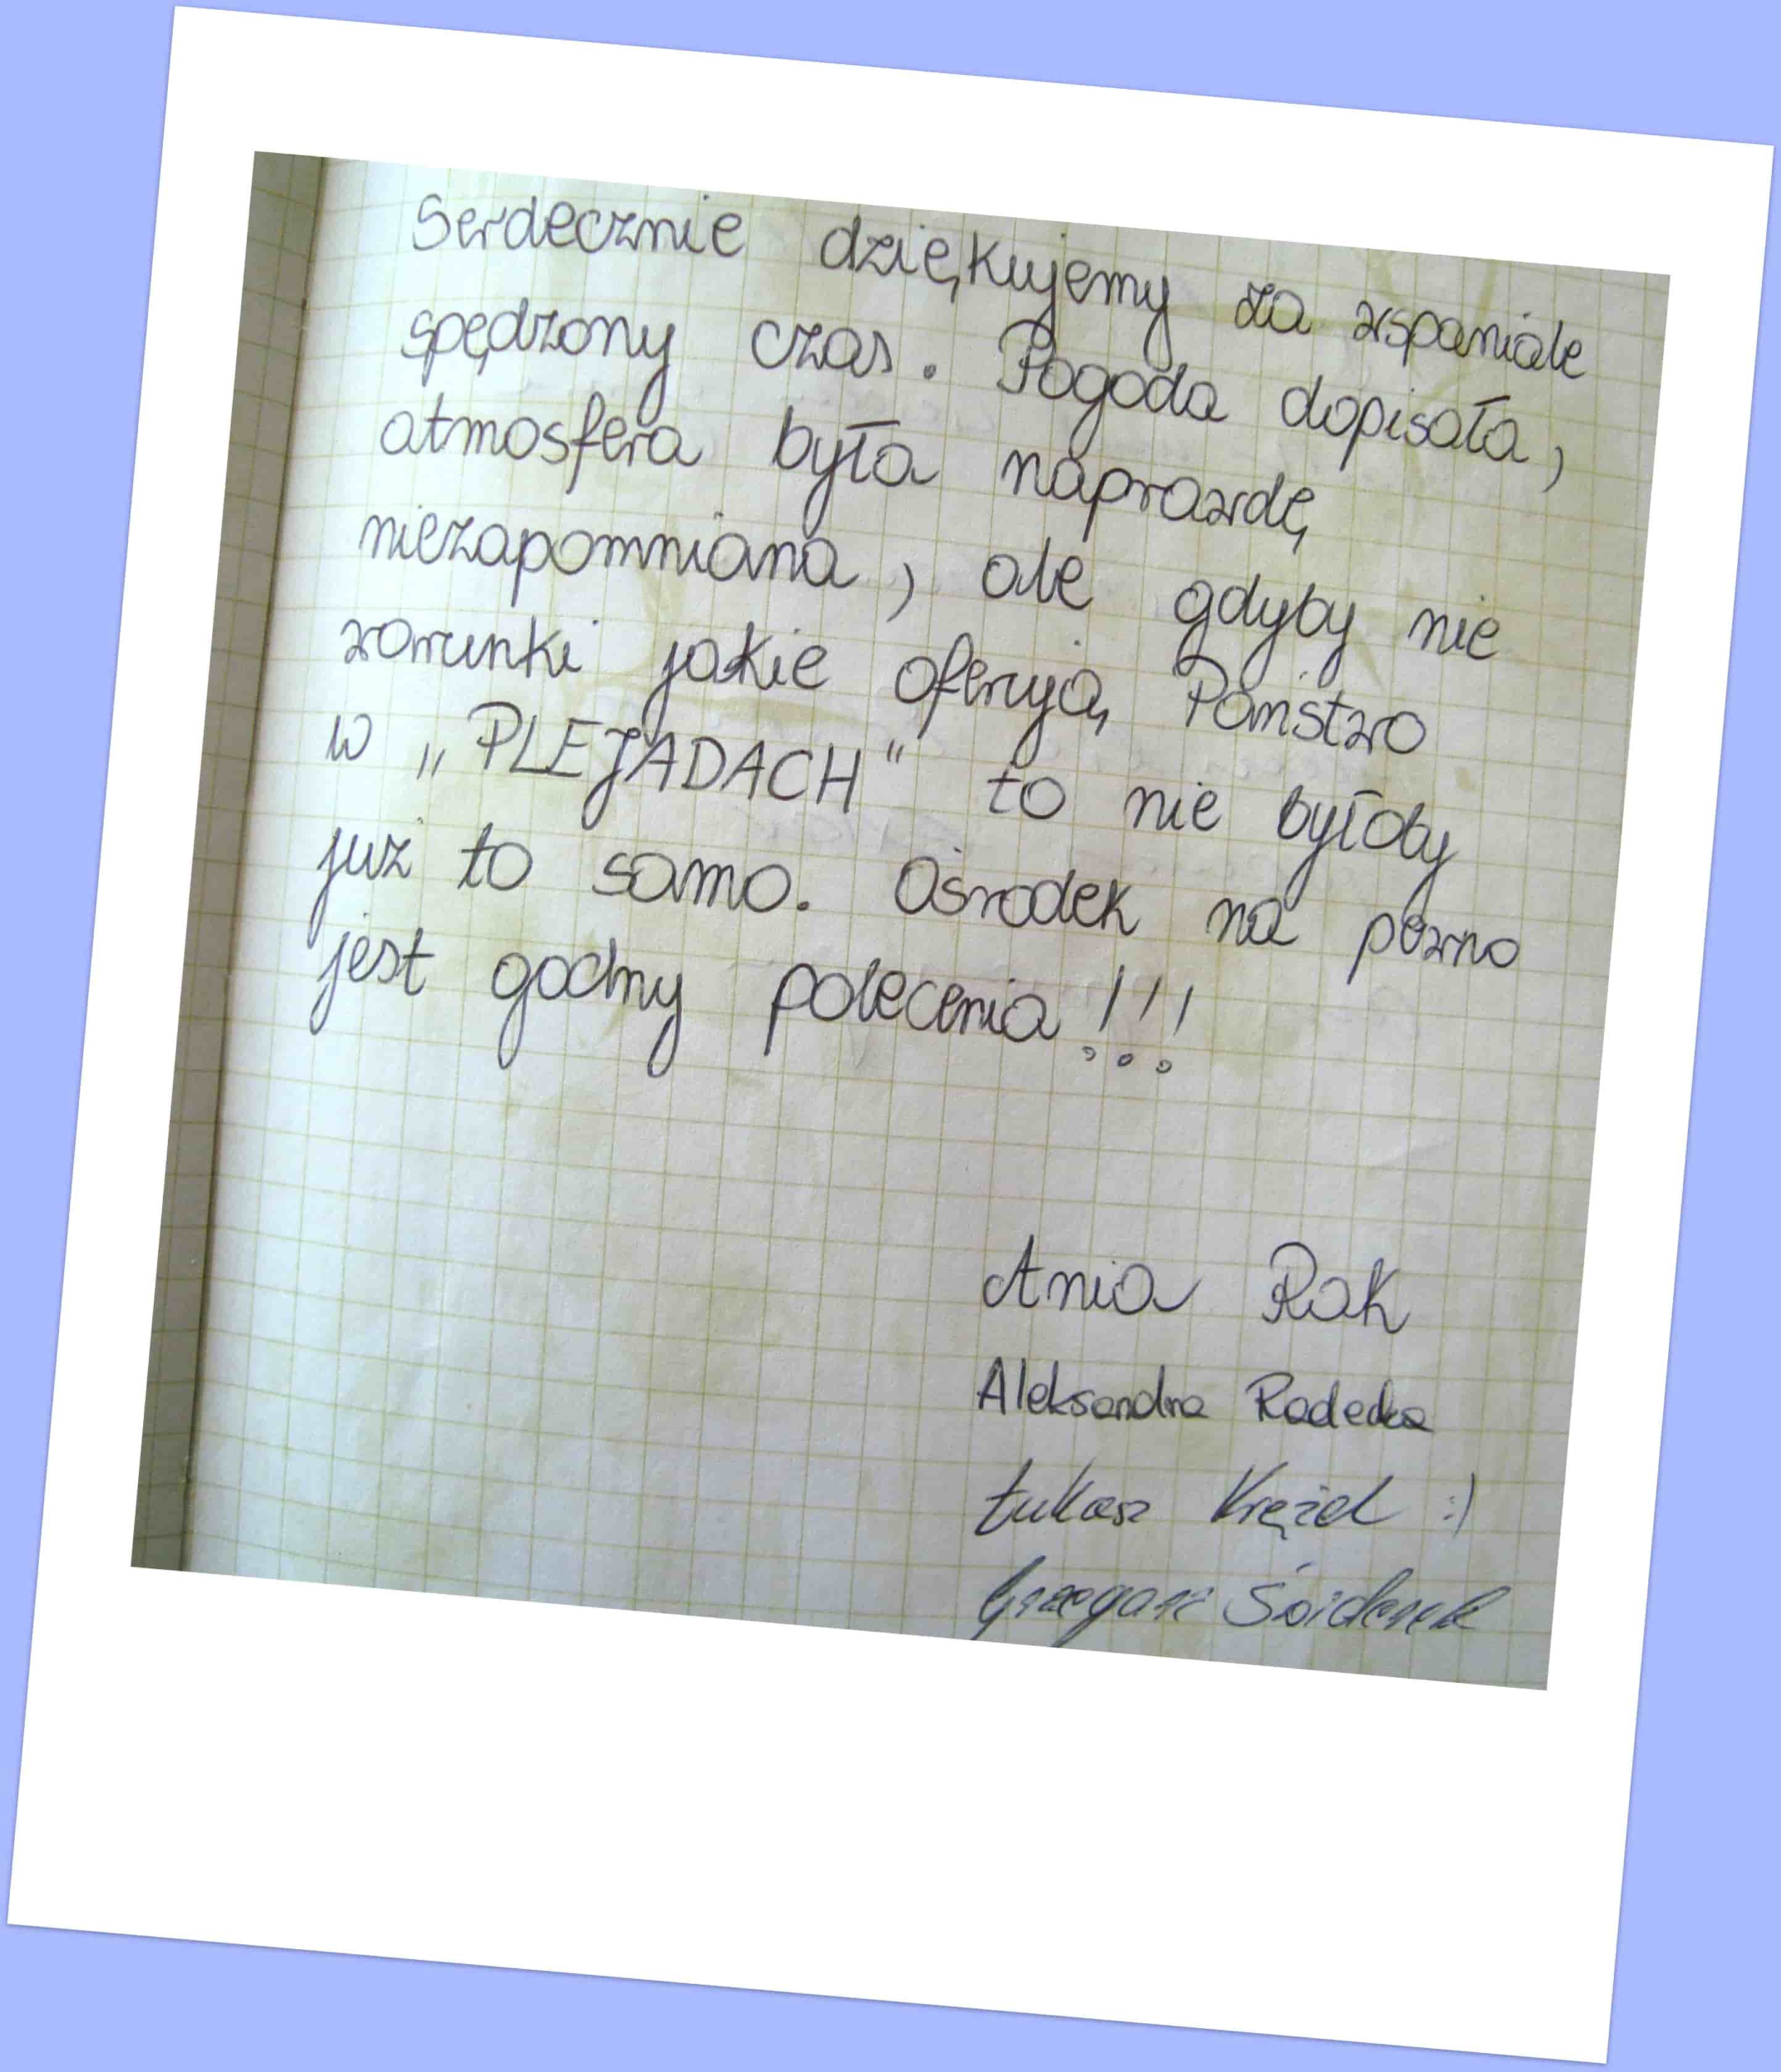 Serdecznie dziękujemy za wspaniale
spędzony czas. Pogoda dopisała,
atmosfera była naprawdę
niezapomniana, ale gdyby nie
warunki jakie oferują Państwo
w „PLEJADACH" to nie byłoby
już to samo. Ośrodek na pewno
jest godny polecenia!!!
Ania Rak
Aleksandra Radecka
Łukasz Krężel :)
Grzegorz